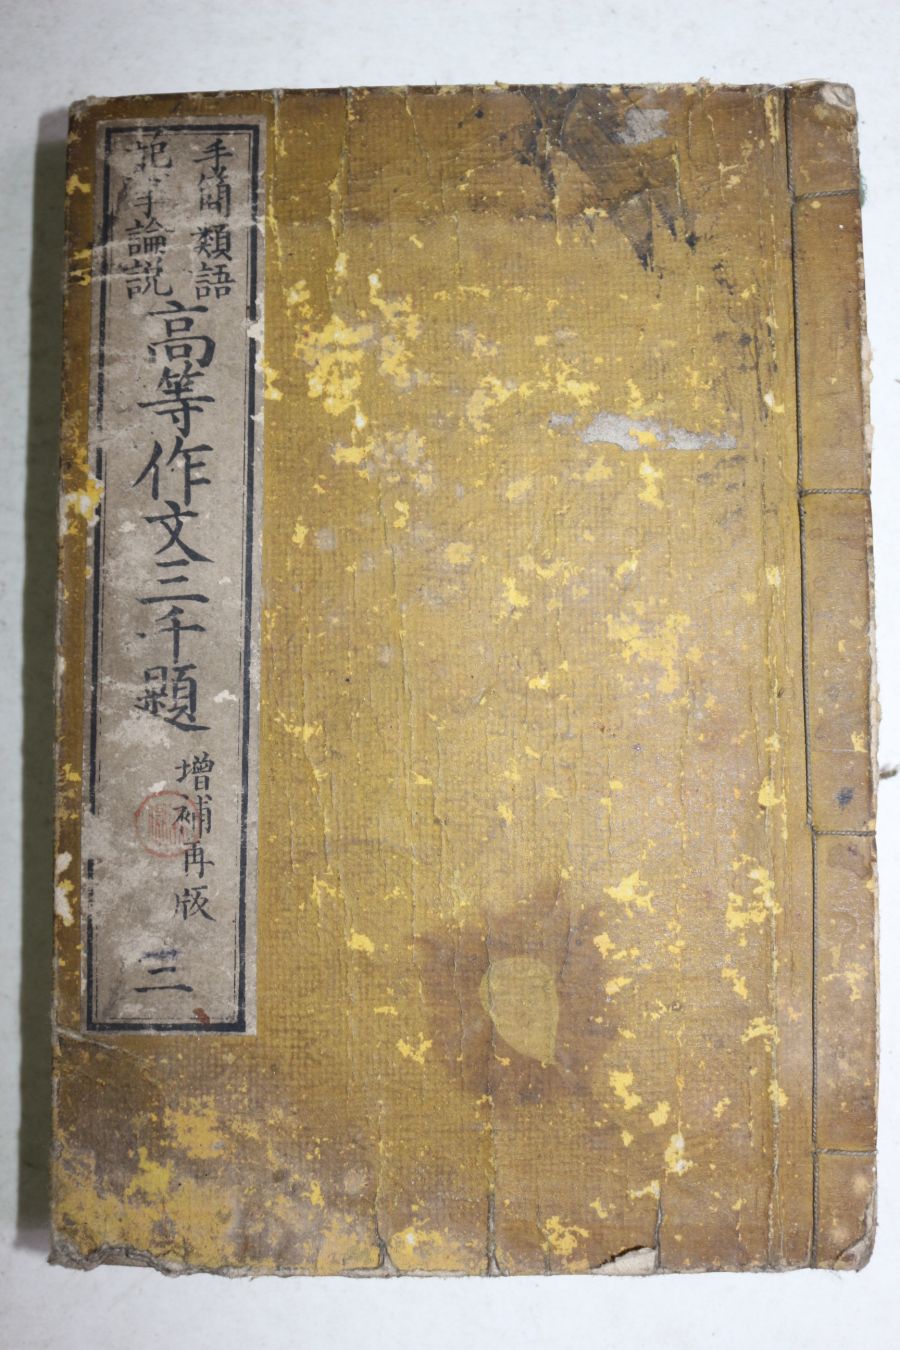 手簡類語
論説
高等作文三千題
增補再版
三